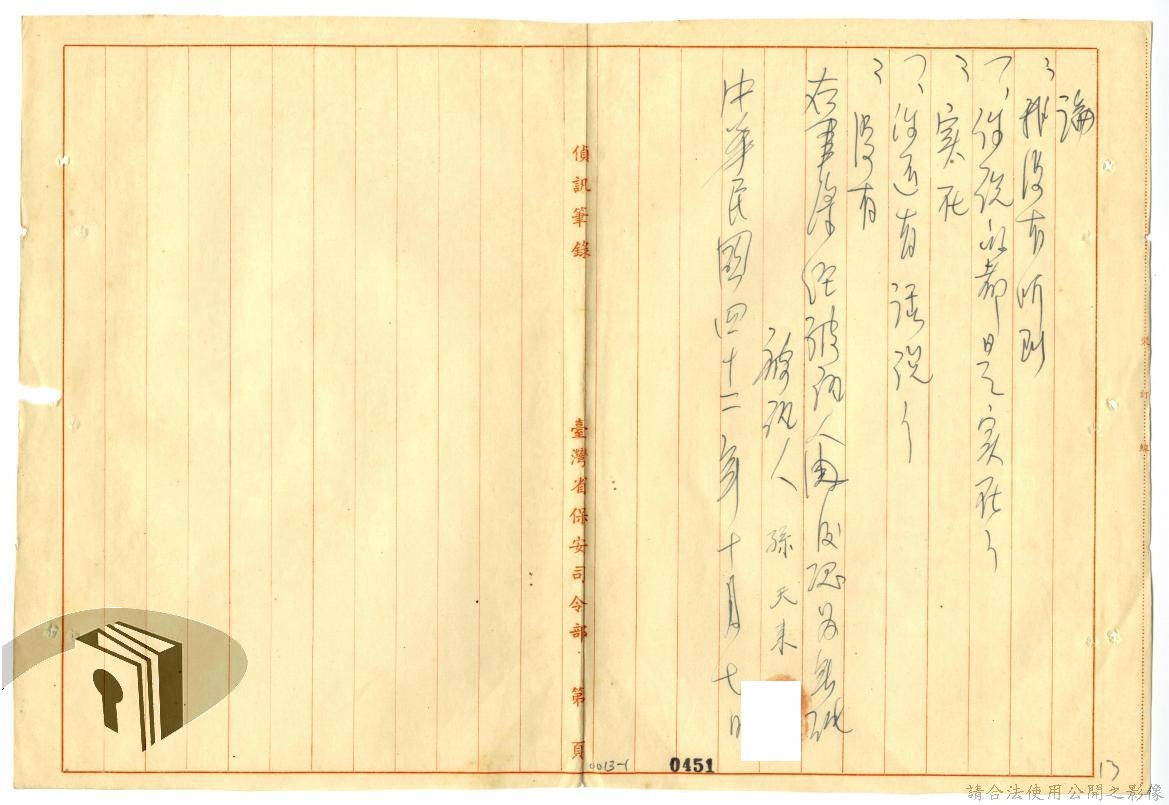 論
我沒有听到
你説的都是实在
实在
你还有話説
沒有
右筆錄經被訊人閱後認為無訛
被訊人 孫天来
中華民國四十二年十月七日
偵訊筆錄 臺灣省保安司令部 第 頁
裝訂線
0451
0013-1
13
請合法使用公開之影像